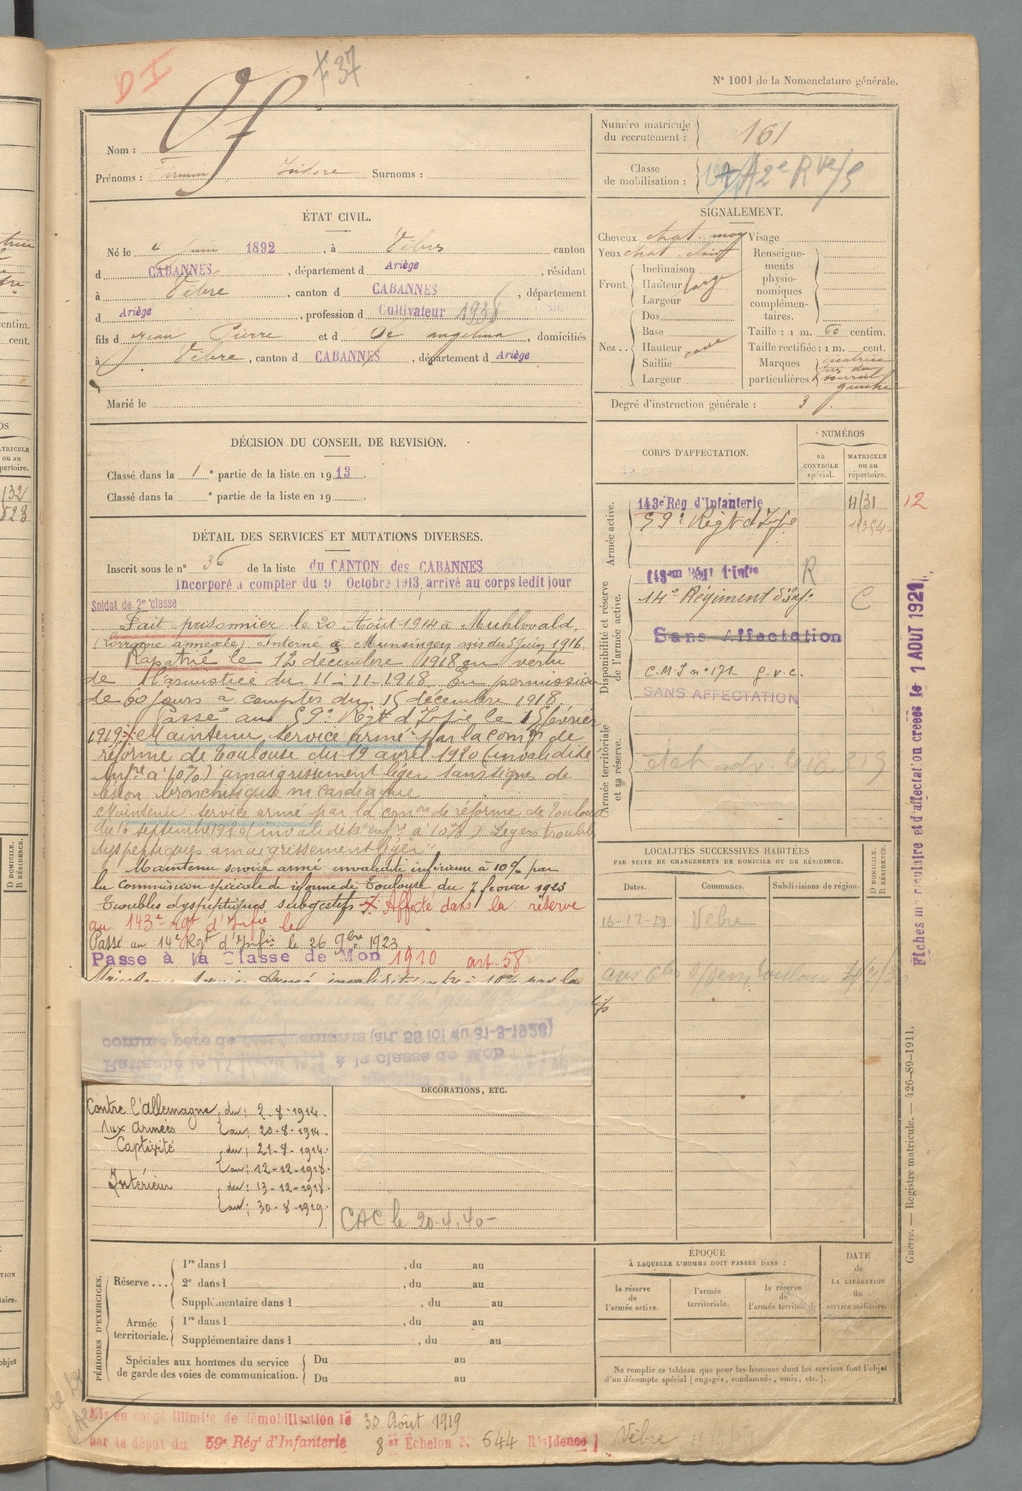 D I
F 37
N° 1001 de la Nomenclature générale.
Nom : Of
Prénoms : Firmin Isidore Surnoms :
Numéro matricule du recrutement : 161
Classe de mobilisation : A 2e Rve/S
ÉTAT CIVIL.
Né le 4 juin 1892, à Vèbre canton
d CABANNES, département d Ariège, résidant
à Vèbre, canton d CABANNES, département
d Ariège, profession d Cultivateur
fils d Jean Pierre et d Of angelina, domiciliés
à Vèbre, canton d CABANNES, département d Ariège
Marié le
SIGNALEMENT.
Cheveux chat. moy Visage
Yeux chat. clair
Front. Inclinaison
Hauteur large
Largeur
Nez.. Dos
Base
Hauteur cave
Saillie
Largeur
Renseignements physionomiques complémentaires.
Taille : 1 m. 60 centim.
Taille rectifiée : 1 m. cent.
Marques particulières. cicatrice
sourcil
gauche
Degré d'instruction générale : 3
DÉCISION DU CONSEIL DE REVISION.
Classé dans la 1e partie de la liste en 1913
Classé dans la e partie de la liste en 19
DÉTAIL DES SERVICES ET MUTATIONS DIVERSES.
Inscrit sous le n° 36 de la liste du CANTON des CABANNES
Incorporé à compter du 9 Octobre 1913, arrivé au corps ledit jour
Soldat de 2e classe
Fait prisonnier le 20 Août 1914 à Muhlwald,
(Lorraine annexée) Interné à Munsingen avis du 5 juin 1916.
Rapatrié le 12 décembre 1918 en vertu
de l'armistice du 11-11-1918. En permission
de 60 jours à compter du 15 décembre 1918.
Passé au 59e Régt d'Infie le 15 février
1919. Maintenu service armé par la Comon de
réforme de Toulouse du 19 avril 1920 (invalidité
infre à 10%) amaigrissement léger sans signe de
lésion bronchitique ni cardiaque
Maintenu service armé par la Comon de réforme de Toulouse
du 16 septembre 1920 (invalidité infre à 10%) Légers troubles
dyspeptiques amaigrissement léger
Maintenu service armé invalidité inférieure à 10% par
la commission spéciale de réforme de Toulouse du 7 février 1923
Troubles dyspeptiques subjectifs Affecté dans la réserve
au 143e Rgt d'Infie le
Passé au 14e Rgt d'Infie le 26 9bre 1923
Passé à la Classe de Mon 1910 art. 58
Rattaché le à la classe de Mon
comme père de enfants (art. 58 loi du 31-3-1928)
CORPS D'AFFECTATION.
NUMÉROS
au CONTRÔLE spécial.
MATRICULE ou au répertoire.
Armée active.
143e Rég d'Infanterie 4131 12
59e Régt d'Infie
Disponibilité et réserve de l'armée active.
R
14e Régiment d'Inf. C
Sans Affectation
C.M.I n° 171 g.v.c.
SANS AFFECTATION
Armée territoriale et sa réserve.
Fiches matriculaire et d'affectation créées le 1 AOUT 1921
LOCALITÉS SUCCESSIVES HABITÉES
PAR SUITE DE CHANGEMENTS DE DOMICILE OU DE RÉSIDENCE.
Dates. Communes. Subdivisions de région. D DOMICILE. R RÉSIDENCE.
Vèbre
DÉCORATIONS, ETC.
Contre l'Allemagne du : 2-8-1914.
Aux Armées au : 20-8-1914.
Captivité du : 21-8-1914.
au : 12-12-1918.
Intérieur du : 13-12-1918.
au : 30-8-1919.
CAC le 20-4-40-
PÉRIODES D'EXERCICES.
Réserve... 1re dans l , du au
2e dans l , du au
Supplémentaire dans l , du au
Armée territoriale. 1re dans l , du au
Supplémentaire dans l , du au
Spéciales aux hommes du service de garde des voies de communication. Du au
Du au
ÉPOQUE
À LAQUELLE L'HOMME DOIT PASSER DANS :
la réserve de l'armée active.
l'armée territoriale.
la réserve de l'armée territoriale.
DATE de LA LIBÉRATION du service militaire.
Ne remplir ce tableau que pour les hommes dont les services font l'objet
d'un décompte spécial (engagés, condamnés, omis, etc.).
Guerre. — Registre matricule. — 426-89-1911.
Mis en congé illimité de démobilisation le 30 Août 1919
par le dépôt du 59e Rég' d'Infanterie 8 er Échelon N° 644 Résidence Vèbre